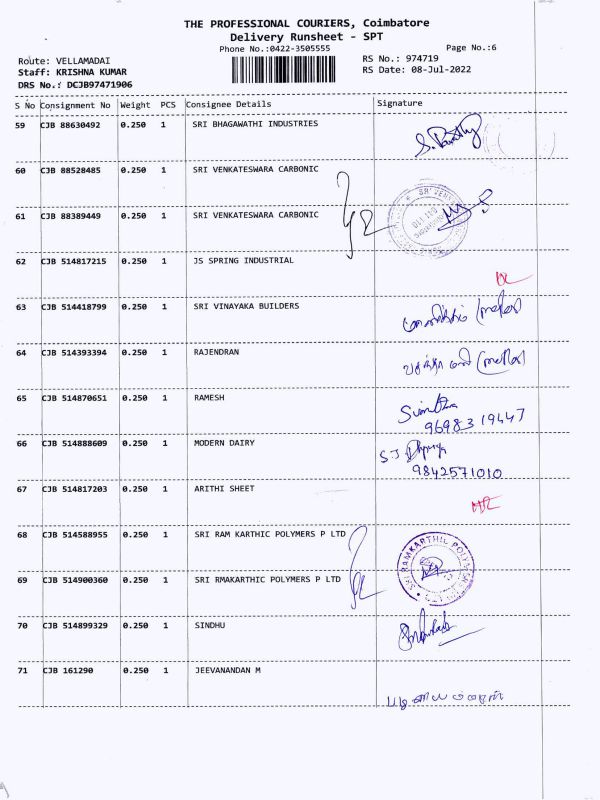 THE PROFESSIONAL COURIERS, Coimbatore
Delivery Runsheet - SPT
Phone No.:0422-3505555
Page No.:6
Route: VELLAMADAI
RS No.: 974719
Staff: KRISHNA KUMAR
RS Date: 08-Jul-2022
DRS No.: DCJB97471906
S No Consignment No Weight PCS Consignee Details Signature
59 CJB 88630492 0.250 1 SRI BHAGAWATHI INDUSTRIES
60 CJB 88528485 0.250 1 SRI VENKATESWARA CARBONIC
61 CJB 88389449 0.250 1 SRI VENKATESWARA CARBONIC
62 CJB 514817215 0.250 1 JS SPRING INDUSTRIAL
63 CJB 514418799 0.250 1 SRI VINAYAKA BUILDERS
64 CJB 514393394 0.250 1 RAJENDRAN
65 CJB 514870651 0.250 1 RAMESH
96983 19447
66 CJB 514888609 0.250 1 MODERN DAIRY
9842571010
67 CJB 514817203 0.250 1 ARITHI SHEET
68 CJB 514588955 0.250 1 SRI RAM KARTHIC POLYMERS P LTD
69 CJB 514900360 0.250 1 SRI RMAKARTHIC POLYMERS P LTD
70 CJB 514899329 0.250 1 SINDHU
71 CJB 161290 0.250 1 JEEVANANDAN M